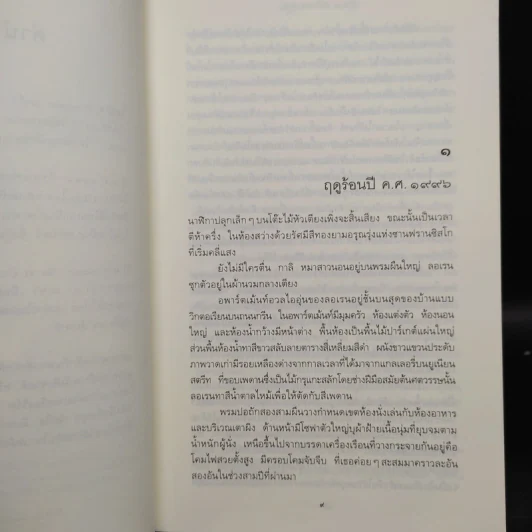 ๑
ฤดูร้อนปี ค.ศ. ๑๙๙๖
นาฬิกาปลุกเล็กๆ บนโต๊ะไม้หัวเตียงเพิ่งจะสิ้นเสียง ขณะนั้นเป็นเวลา
ตีห้าครึ่ง ในห้องสว่างด้วยรัศมีสีทองยามอรุณรุ่งแห่งซานฟรานซิสโก
ที่เริ่มคลี่แสง
ยังไม่มีใครตื่น กาลี หมาสาวนอนอยู่บนพรมผืนใหญ่ ลอเรน
ซุกตัวอยู่ในผ้านวมกลางเตียง
อพาร์ตเม้นท์อวลไออุ่นของลอเรนอยู่ชั้นบนสุดของบ้านแบบ
วิกตอเรียนบนถนนกรีน ในอพาร์ตเม้นท์มีมุมครัว ห้องแต่งตัว ห้องนอน
ใหญ่ และห้องน้ำกว้างมีหน้าต่าง พื้นห้องเป็นพื้นไม้ปาร์เกต์แผ่นใหญ่
ส่วนพื้นห้องน้ำทาสีขาวสลับลายตารางสี่เหลี่ยมสีดำ ผนังขาวแขวนประดับ
ภาพวาดเก่ามีรอยเหลืองด่างจากกาลเวลาที่ได้มาจากแกลเลอรี่บนยูเนียน
สตรีท ที่ขอบเพดานซึ่งเป็นไม้กรุแกะสลักโดยช่างฝีมือสมัยต้นศตวรรษนั้น
ลอเรนทาสีน้ำตาลไหม้เพื่อให้ตัดกับสีเพดาน
พรมปอถักสองสามผืนวางกำหนดเขตห้องนั่งเล่นกับห้องอาหาร
และบริเวณเตาผิง ด้านหน้ามีโซฟาตัวใหญ่บุผ้าฝ้ายเนื้อนุ่มที่ยุบจมตาม
น้ำหนักผู้นั่ง เหนือขึ้นไปจากบรรดาเครื่องเรือนที่วางกระจายกันอยู่คือ
โคมไฟสวยตั้งสูง มีครอบโคมจับจีบ ที่เธอค่อยๆ สะสมมาคราวละอัน
สองอันในช่วงสามปีที่ผ่านมา
๙